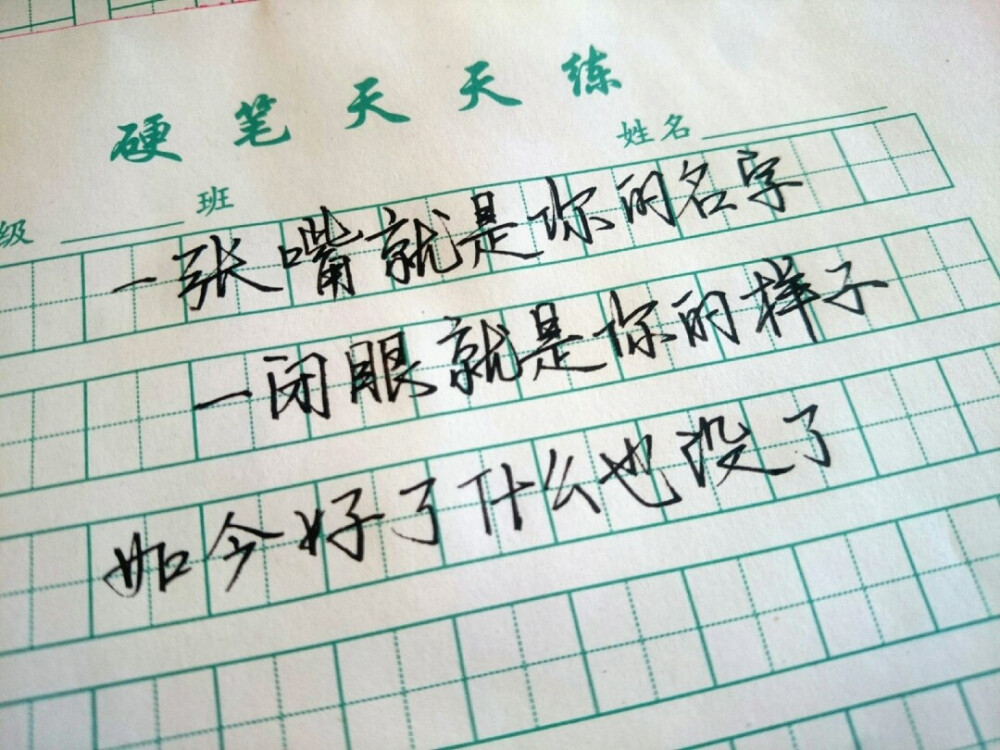 硬笔天天练
姓名
级 班
一张嘴就是你的名字
一闭眼就是你的样子
如今好了什么也没了